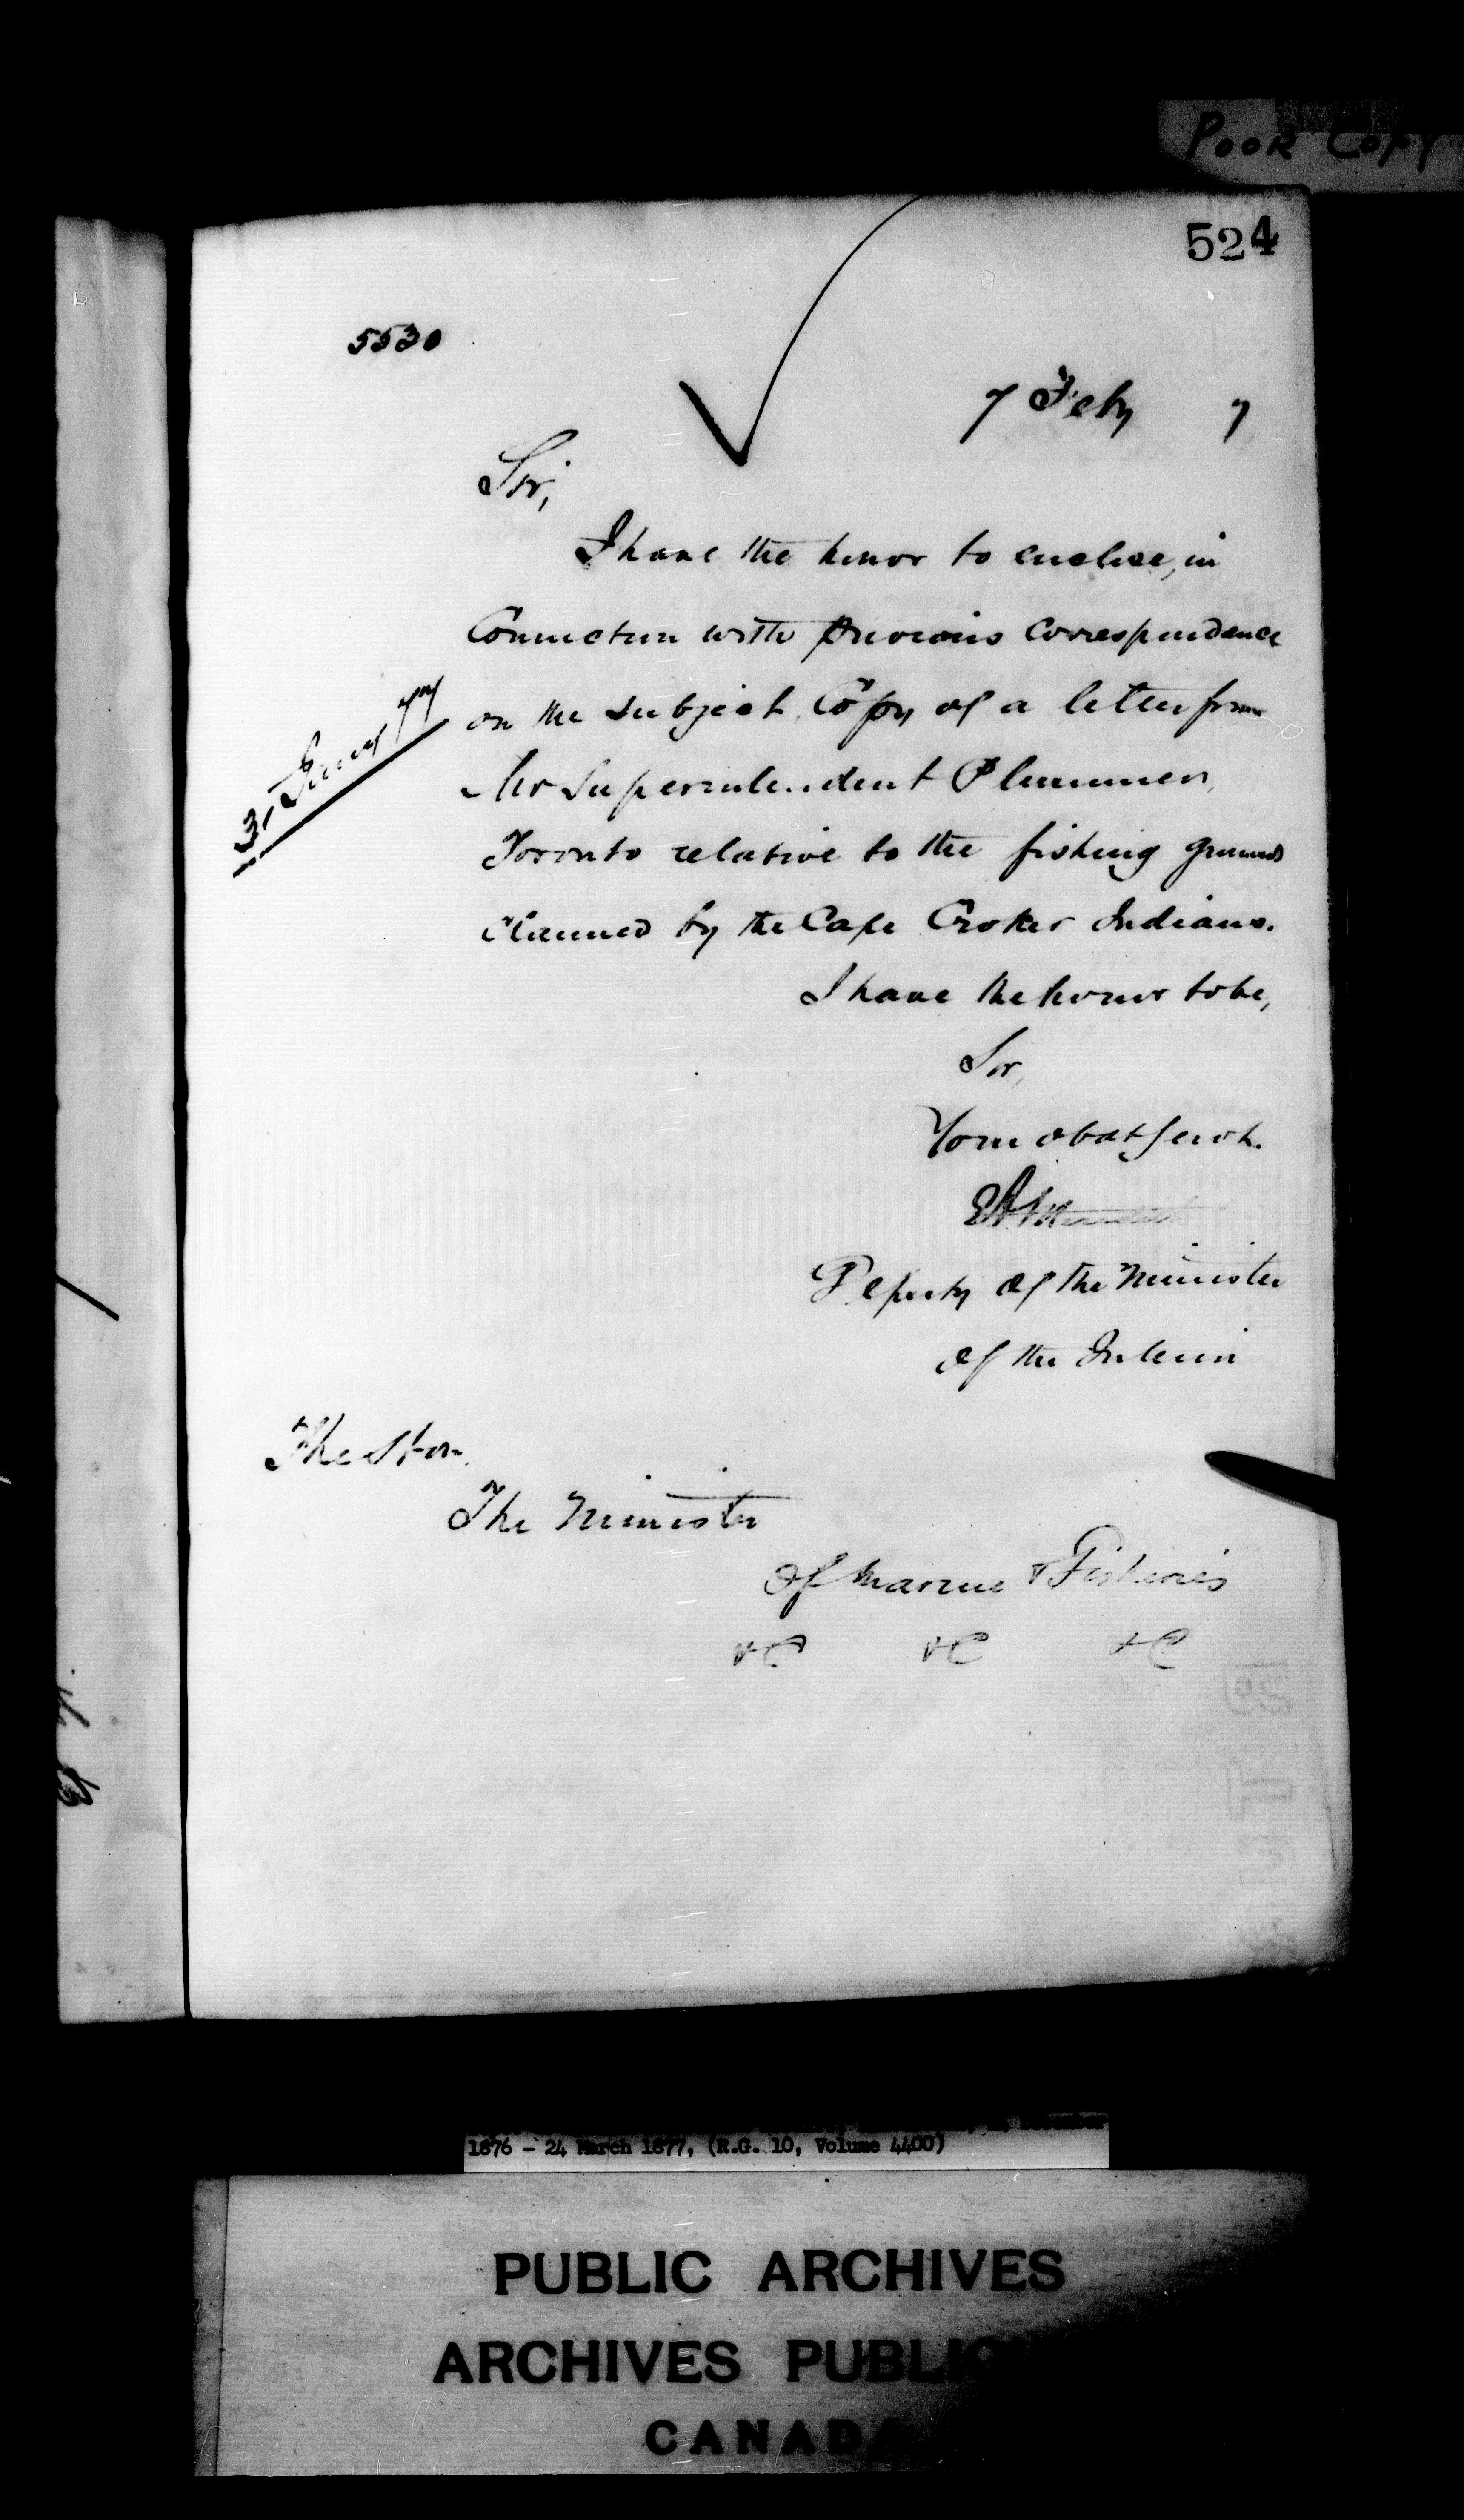 POOR COPY
524
5530
7 Feby 7
Sir,
I have the honor to enclose, in
Connection with previous correspondence
on the subject, Copy of a letter from
31 Jany 77
Mr Superintendent Plummer,
Toronto relative to the fishing grounds
claimed by the Cape Croker Indians.
I have the honor to be,
Sir,
Your obdt Servt.
EA Meredith
Deputy of the Minister
of the Interior
The Hon.
The Minister
Of Marine & Fisheries
&C &C &C
1876 - 24 March 1877, (R.G. 10, Volume 4400)
PUBLIC ARCHIVES
ARCHIVES PUBLIC
CANADA